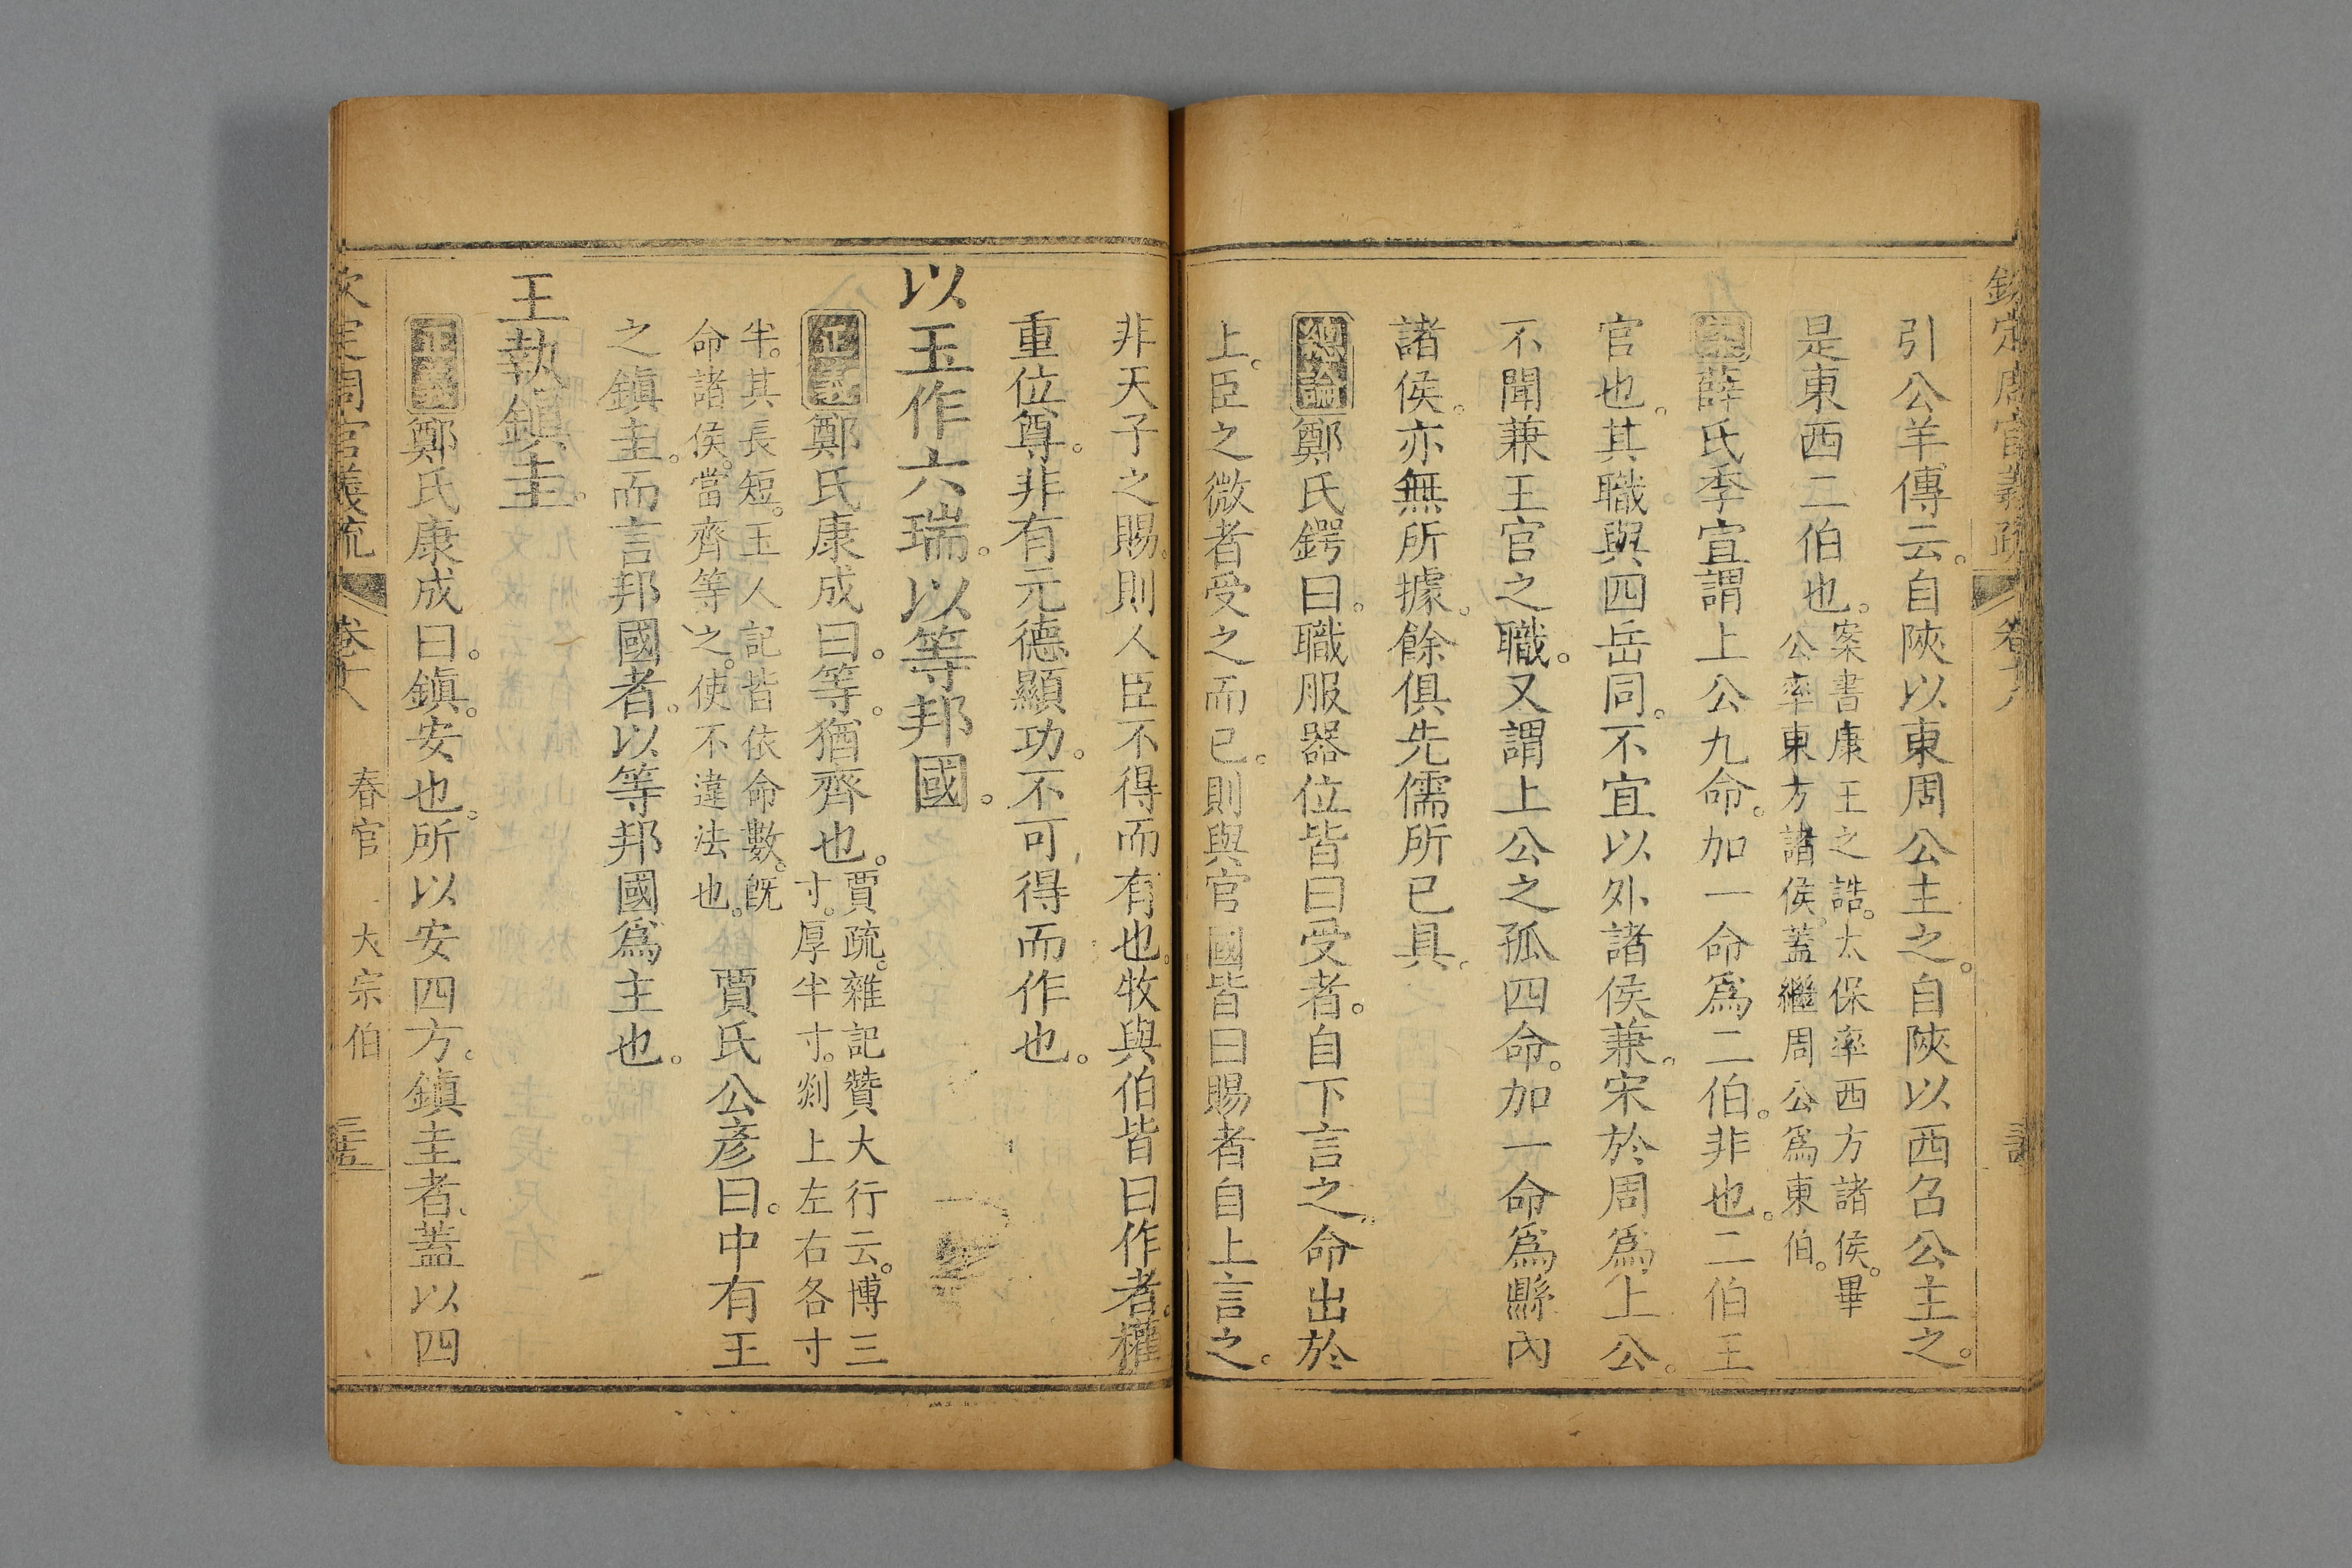 欽定周官義疏 卷十八
引公羊傳云。自陝以東周公主之。自陝以西召公主之。
是東西二伯也。案書康王之誥。太保率西方諸侯。畢
公率東方諸侯。蓋繼周公爲東伯。
案薛氏季宣謂上公九命。加一命爲二伯。非也。二伯王
官也。其職與四岳同。不宜以外諸侯兼。宋於周爲上公。
不聞兼王官之職。又謂上公之孤四命。加一命爲縣內
諸侯。亦無所據。餘俱先儒所已具。
總論鄭氏鍔曰。職服器位皆曰受者。自下言之。命出於
上。臣之微者受之而已。則與官國皆曰賜者自上言之。
非天子之賜。則人臣不得而有也。牧與伯皆曰作者。權
重位尊。非有元德顯功。不可得而作也。
以玉作六瑞。以等邦國。
正義鄭氏康成曰。等。猶齊也。賈疏。雜記贊大行云。博三
寸。厚半寸。剡上左右各寸
半。其長短。玉人記皆依命數。旣
命諸侯。當齊等之。使不違法也。賈氏公彥曰。中有王
之鎭圭。而言邦國者。以等邦國爲主也。
王執鎭圭。
正義鄭氏康成曰。鎭。安也。所以安四方。鎭圭者、蓋以四
欽定周官義疏 卷十八 春官 大宗伯